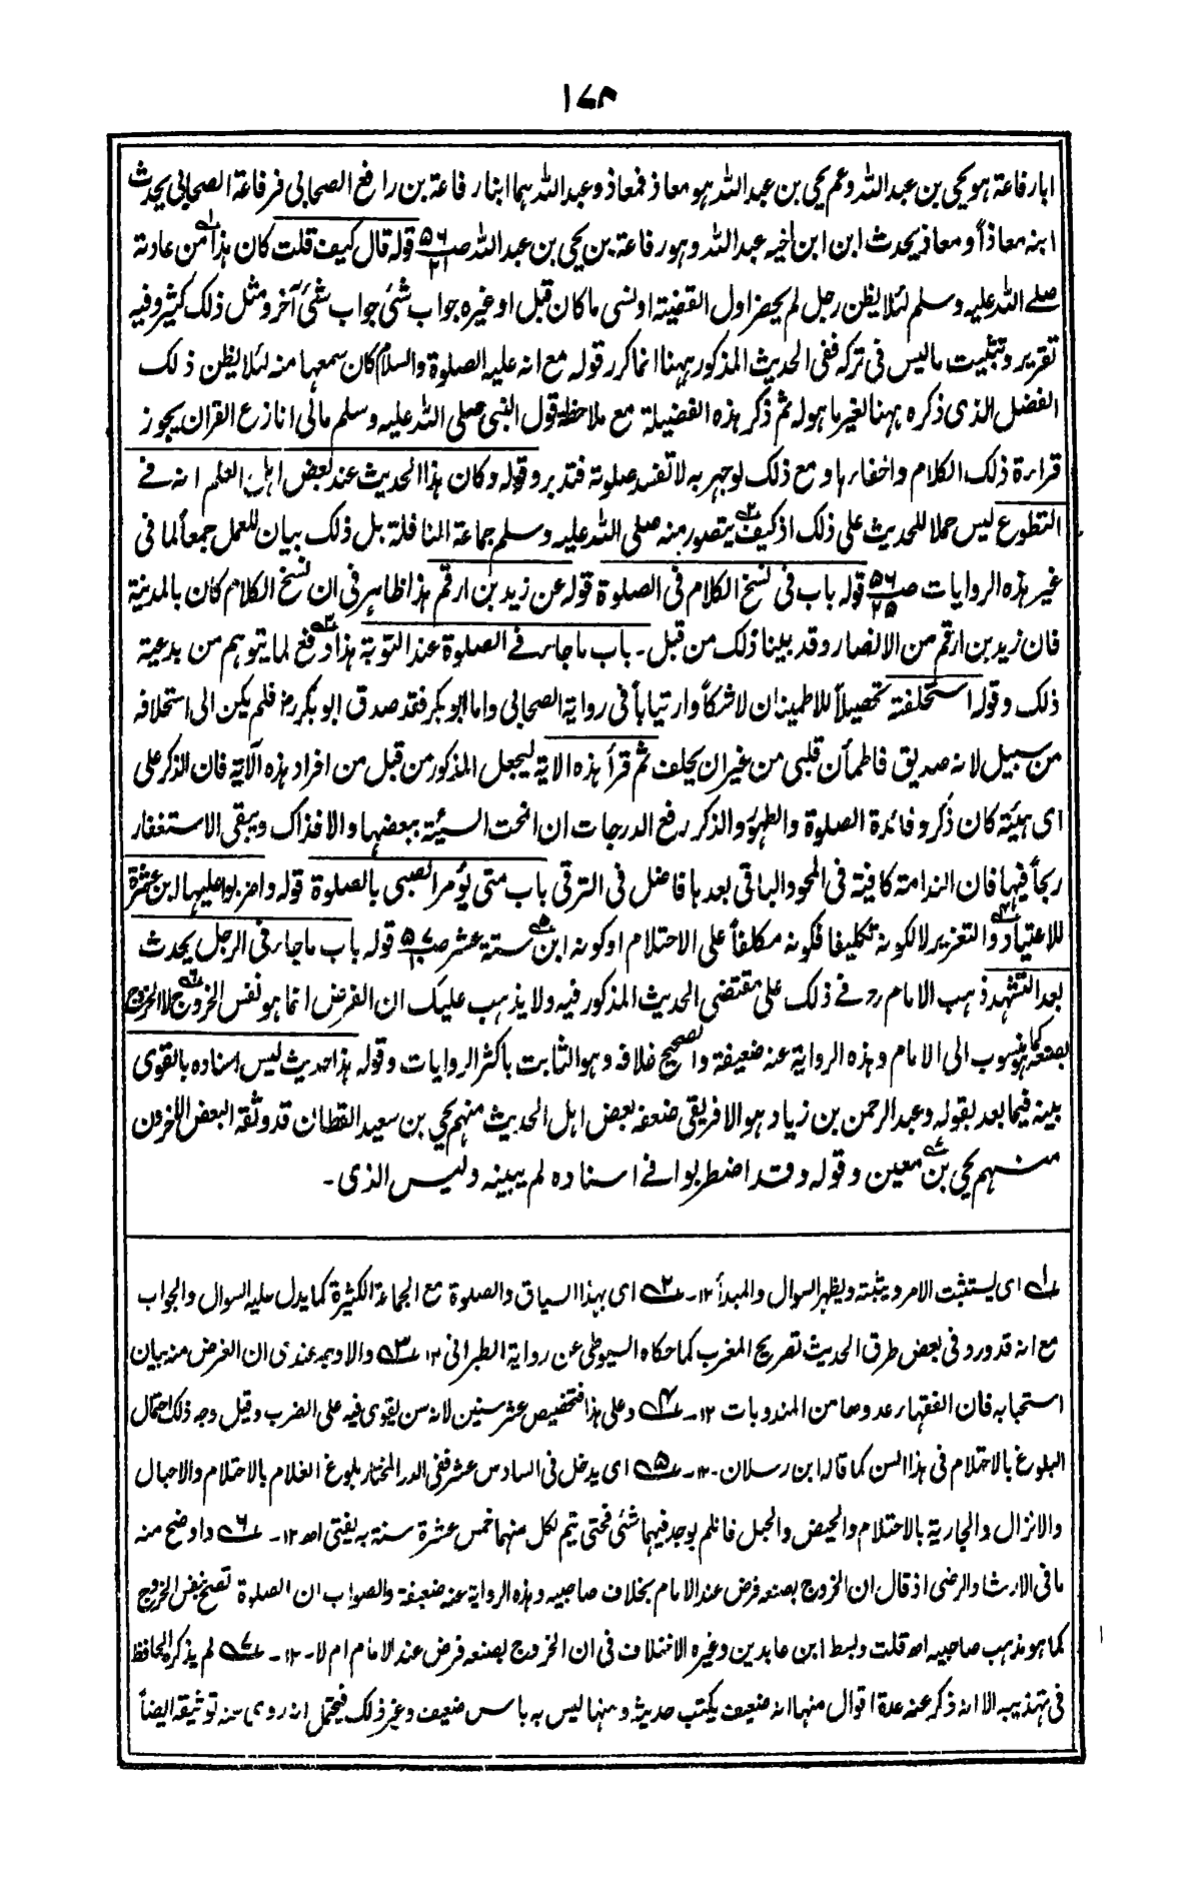 ١٧٣
ابا رفاعة هو يحيى بن عبد الله وعم يحيى بن عبد الله هو معاذ فمعاذ وعبد الله هما ابنا رفاعة بن رافع الصحابى فرفاعة الصحابى يحدث
ابنه معاذاً ومعاذ يحدث ابن ابن اخيه عبد الله وهو رفاعة بن يحيى بن عبد الله صـ ٥٦ قوله قال كيف قلت كان هذا من عادته
صلے الله عليه وسلم لئلا يظن رجل لم يحضر اول القضية او نسى ما كان قبل او غيره جواب شئ جواب شئ آخر ومثل ذلك كثير وفيه
تقرير وتثبيت ما ليس فى تركه ففى الحديث المذكور ههنا انما كرر قوله مع انه عليه الصلوة والسلام كان سمعها منه لئلا يظن ذلك
الفضل الذى ذكره ههنا لغير ما هو له ثم ذكر هذه الفضيلة مع ملاحظة قول النبى صلى الله عليه وسلم مالى انازع القران يجوز
قراءة ذلك الكلام واخفاءها ومع ذلك لو جهر به لا تفسد صلوته فتدبر وقوله وكان هذا الحديث عند بعض اهل العلم انه فے
التطوع ليس حملا للحديث على ذلك اذ كيف يتصور منه صلى الله عليه وسلم جماعة النافلة بل ذلك بيان للعمل جمعاً لما فى
غير هذه الروايات صـ ٥٦ قوله باب فى نسخ الكلام فى الصلوة قوله عن زيد بن ارقم هذا ظاهر فى ان نسخ الكلام كان بالمدينة
فان زيد بن ارقم من الانصار وقد بينا ذلك من قبل ـ باب ما جاء فے الصلوة عند التوبة هذا دفع لما يتوهم من بدعية
ذلك وقوله استحلفته تحصيلاً للاطمينان لا شكاً وارتياباً فى رواية الصحابى واما ابو بكر فقد صدق ابو بكر رض فلم يكن الى استحلافه
من سبيل لانه صديق فاطمأن قلبى من غير ان يحلف ثم قرأ هذه الاية ليجعل المذكور من قبل من افراد هذه الآية فان الذكر على
اى هيئة كان ذُكر وفائدة الصلوة والطهور والذكر رفع الدرجات ان انمحت السيئة ببعضها والا فذاك ويبقى الاستغفار
ربحاً فيها فان الندامة كافية فى المحو والباقى بعدها فاضل فى الترقى باب متى يؤمر الصبى بالصلوة قوله واضربوا عليها ابن عشرة
للاعتياد والتعزير لا لكونه تكليفا فكونه مكلفاً على الاحتلام او كونه ابن ستة عشر صـ ٥٧ قوله باب ما جاء فى الرجل يحدث
بعد التشهد ذهب الامام رح فے ذلك على مقتضى الحديث المذكور فيه ولا يذهب عليك ان الفرض انما هو نفس الخروج لا الخروج
بصنعه كما هو منسوب الى الامام وهذه الرواية عنه ضعيفة والصحيح خلافه وهو الثابت باكثر الروايات وقوله هذا حديث ليس اسناده بالقوى
بينه فيما بعد بقوله وعبد الرحمن بن زياد هو الافريقى ضعفه بعض اهل الحديث منهم يحيى بن سعيد القطان قد وثقه البعض الاخرون
منهم يحيى بن معين وقوله وقد اضطربوا فے اسناده لم يبينه وليس الذى ـ
١ـه اى يستثبت الامر ويثبته ويظهر السوال والمبدأ ١٢ـ ٢ـه اى بهذا السياق والصلوة مع الجماعة الكثيرة كما يدل عليه السوال والجواب
مع انه قد ورد فى بعض طرق الحديث تصريح المغرب كما حكاه السيوطى عن رواية الطبرانى ١٢ ٣ـه والاوجه عندى ان الغرض منه بيان
استحبابه فان الفقهاء عدوها من المندوبات ١٢ـ ٤ـه وعلى هذا فتخصيص عشر سنين لانه سن يقوى فيه على الضرب وقيل وجه ذلك احتمال
البلوغ بالاحتلام فى هذا السن كما قاله ابن رسلان ١٢ـ ٥ـه اى يدخل فى السادس عشر ففى الدر المختار بلوغ الغلام بالاحتلام والاحبال
والانزال والجارية بالاحتلام والحيض والحبل فان لم يوجد فيهما شئ فحتى يتم لكل منهما خمس عشرة سنة به يفتى اھ ١٢ـ ٦ـه واوضح منه
ما فى الارشاد الرضى اذ قال ان الخروج بصنعه فرض عند الامام بخلاف صاحبيه وهذه الرواية عنه ضعيفة والصواب ان الصلوة تصح بنفس الخروج
كما هو مذهب صاحبيه اھ قلت وبسط ابن عابدين وغيره الاختلاف فى ان الخروج بصنعه فرض عند الامام ام لا ١٢ـ ٧ـه لم يذكره الحافظ
فى تهذيبه الا انه ذكر عنه عدة اقوال منها انه ضعيف يكتب حديثه ومنها ليس به باس ضعيف وغير ذلك فيحتمل انه روى عنه توثيقه ايضاً